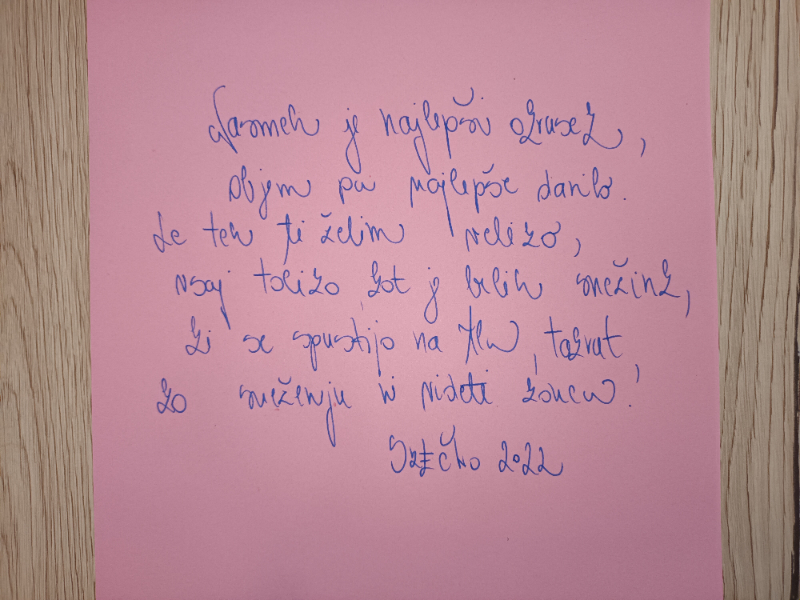 Nasmeh je najlepši okrasek,
objem pa najlepše darilo.
Le teh ti želim veliko,
vsaj toliko, kot je belih snežink,
ki se spustijo na tla, takrat,
ko sneženju ni videti konca.
Srečno 2022